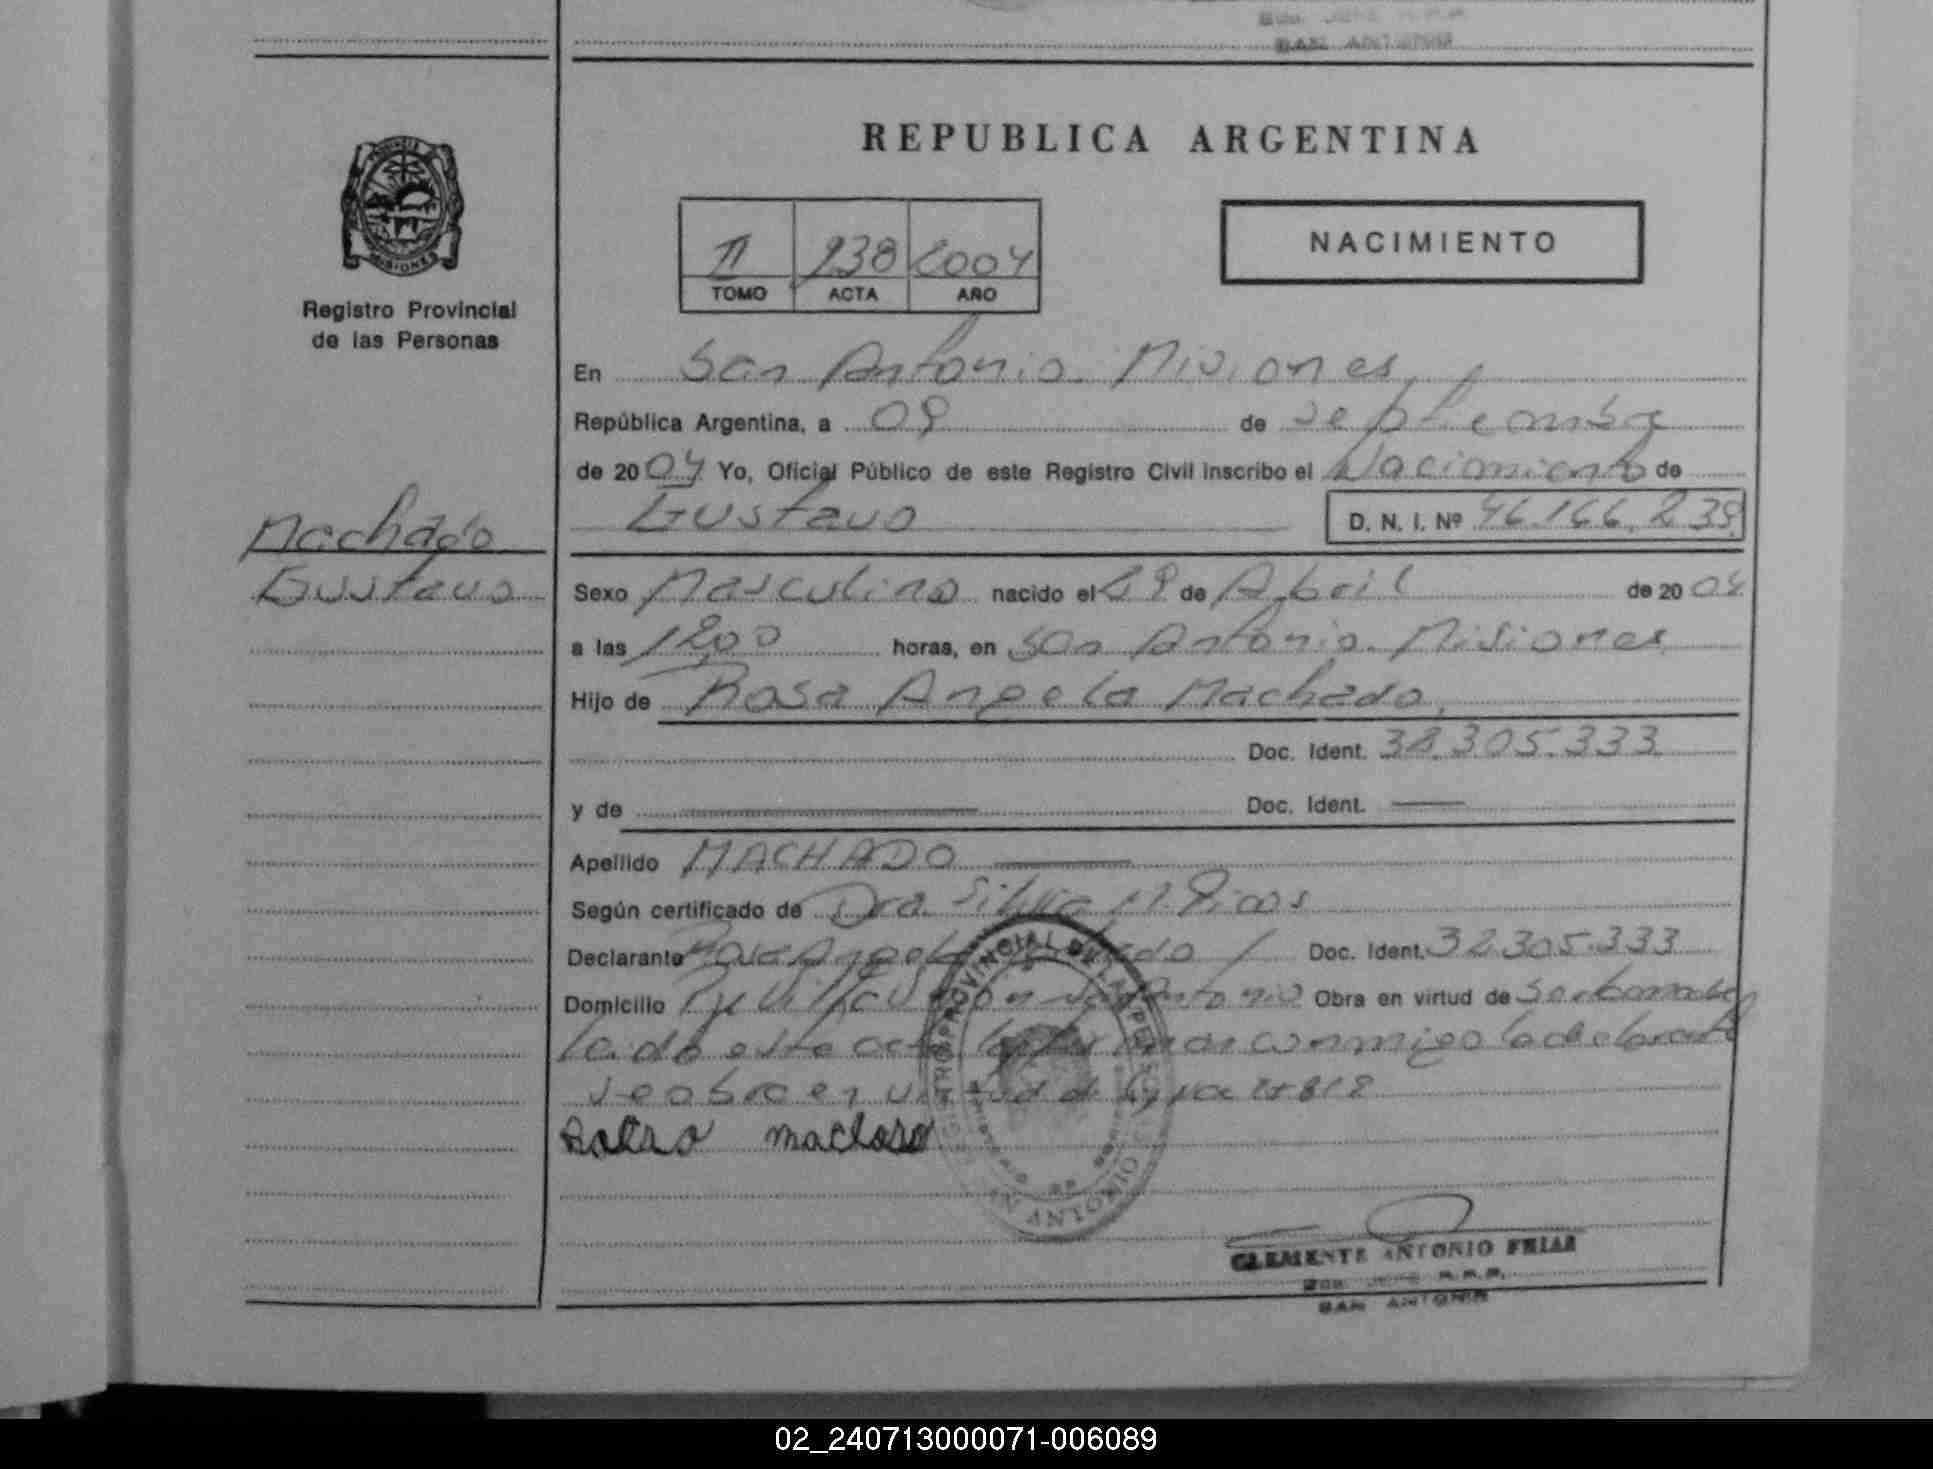 SAN ANTONIO
REPUBLICA ARGENTINA
PROVINCIA
MISIONES
Registro Provincial
de las Personas
II 238 2004
TOMO ACTA AÑO
NACIMIENTO
En San Antonio Misiones
República Argentina, a 09 de septiembre
de 2004 Yo, Oficial Público de este Registro Civil inscribo el Nacimiento de
Gustavo
D. N. I. Nº 46.166.238
Machado
Gustavo
Sexo Masculino nacido el 29 de Abril de 2004
a las 1200 horas, en San Antonio Misiones
Hijo de Rosa Angela Machado
Doc. Ident. 38.305.333
y de Doc. Ident.
Apellido MACHADO
Según certificado de Dra. Silvia M.
Declarante Rosa Angela Machado Doc. Ident. 38.305.333
Domicilio San Antonio Obra en virtud de
Leida este acta la firman conmigo la declarante
se obra en virtud de
CLEMENTE ANTONIO
SAN ANTONIO
02_240713000071-006089